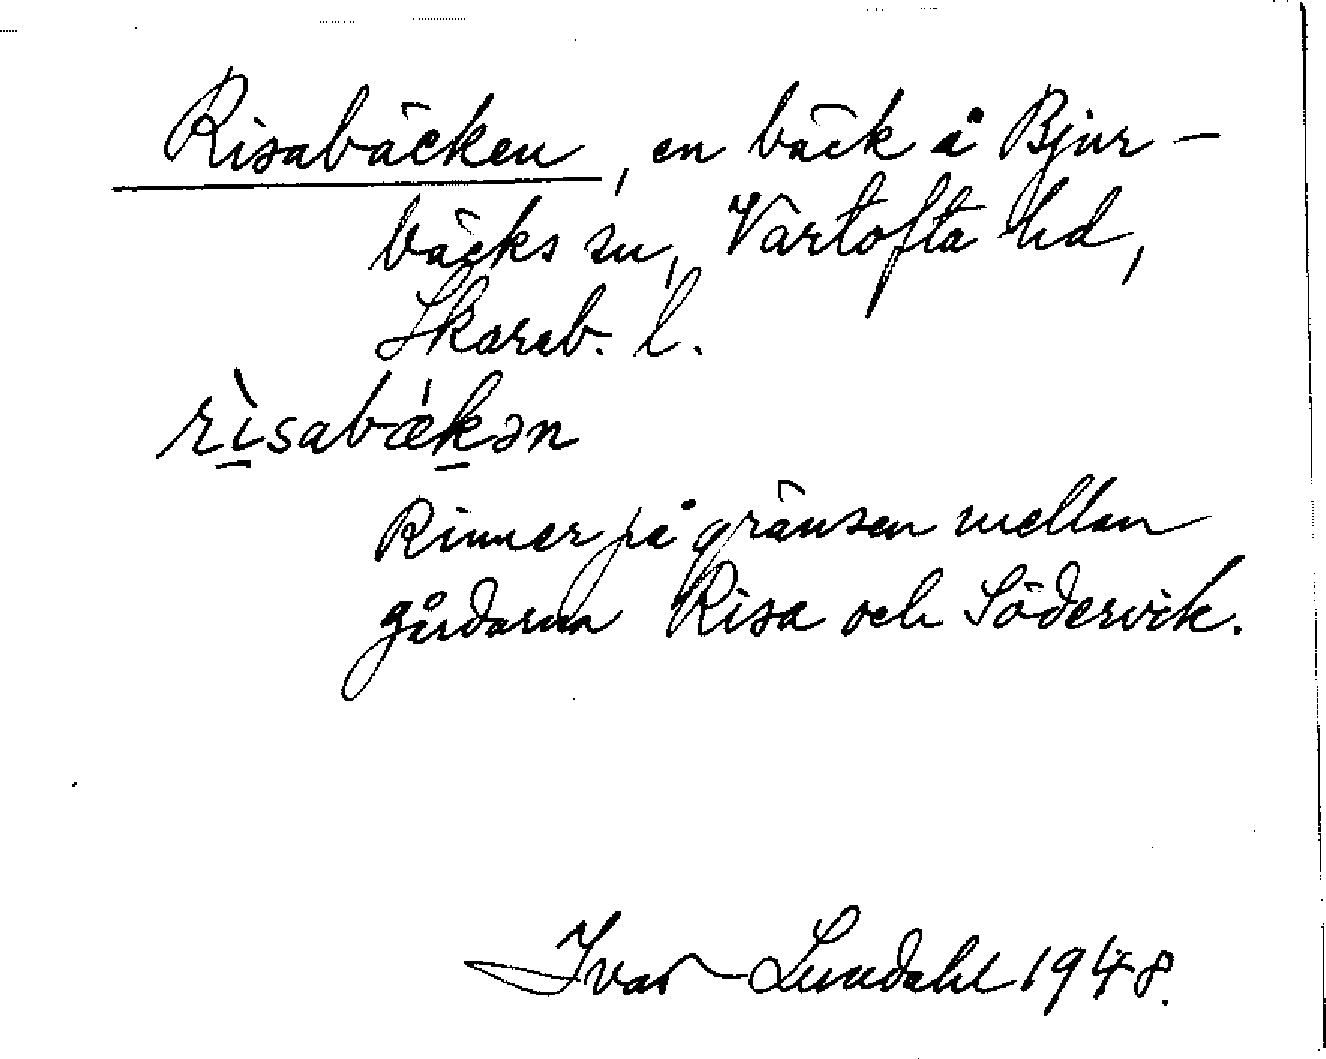 Risabäcken, en bäck å Bjur-
bäcks sn, Vartofta hd,
Skarab. l.
rı̀sabǽkən
Rinner på gränsen mellan
gårdarna Risa och Södervik.
Ivar Lundahl 1948.